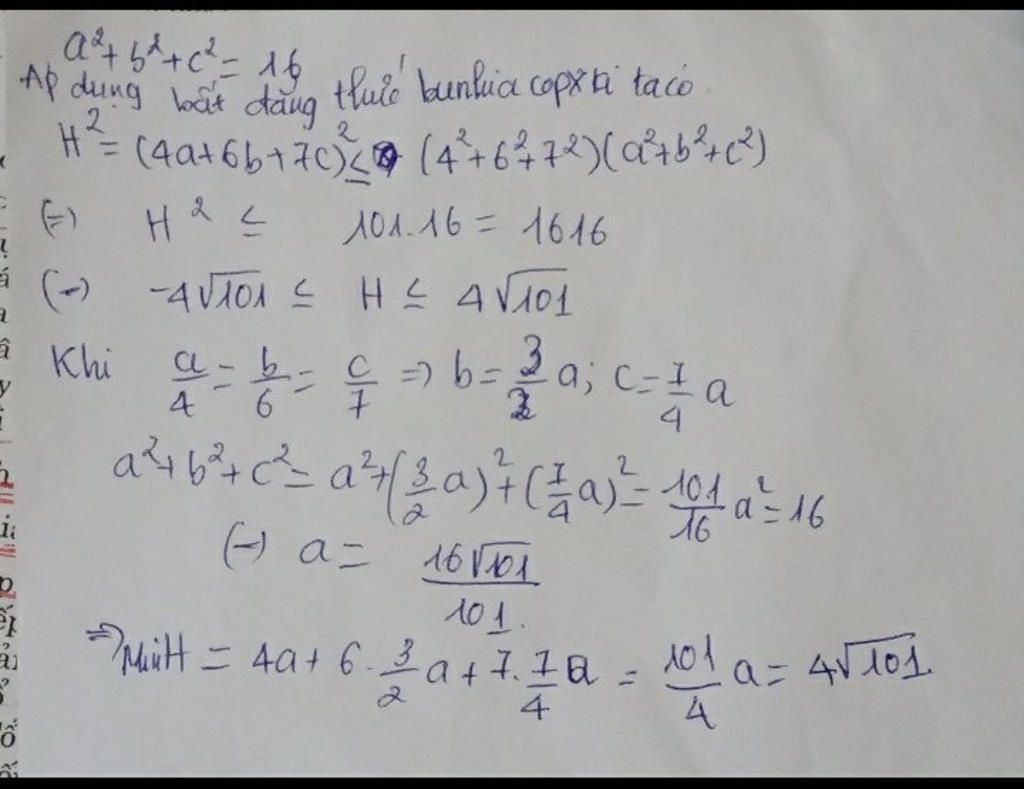 a² + b² + c² = 16
Áp dụng bất đẳng thức bunhia copxki ta có
H² = (4a+6b+7c)² ≤ (4²+6²+7²)(a²+b²+c²)
(=) H² ≤ 101.16 = 1616
(=) -4√101 ≤ H ≤ 4√101
Khi a/4 = b/6 = c/7 => b = 3/2 a; c = 7/4 a
a² + b² + c² = a² + (3/2 a)² + (7/4 a)² = 101/16 a² = 16
(=) a = 16√101/101.
=> MinH = 4a + 6 . 3/2 a + 7. 7/4 a = 101/4 a = 4√101.